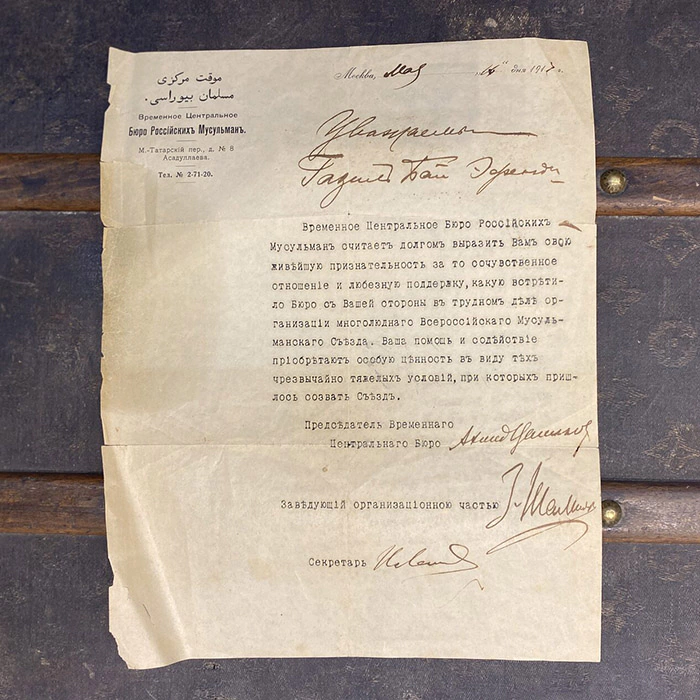 موقت مركزى
مسلمان بيوراسى.
Временное Центральное
Бюро Россійскихъ Мусульманъ.
М.-Татарскій пер., д. № 8
Асадуллаева.
Тел. № 2-71-20.
Москва, Мая „16" дня 1917 г.
Уважаемый
Бай Эфенди
Временное Центральное Бюро Россійскихъ
Мусульманъ считаетъ долгомъ выразить Вамъ свою
живѣйшую признательность за то сочувственное
отношеніе и любезную поддержку, какую встрѣти-
ло Бюро съ Вашей стороны въ трудномъ дѣлѣ ор-
ганизаціи многолюднаго Всероссійскаго Мусуль-
манскаго Съѣзда. Ваша помощь и содѣйствіе
пріобрѣтаютъ особую цѣнность въ виду тѣхъ
чрезвычайно тяжелыхъ условій, при которыхъ приш-
лось созвать Съѣздъ.
Предсѣдатель Временнаго
Центральнаго Бюро Ахмед Цаликов
Завѣдующій организаціонною частью
Секретарь